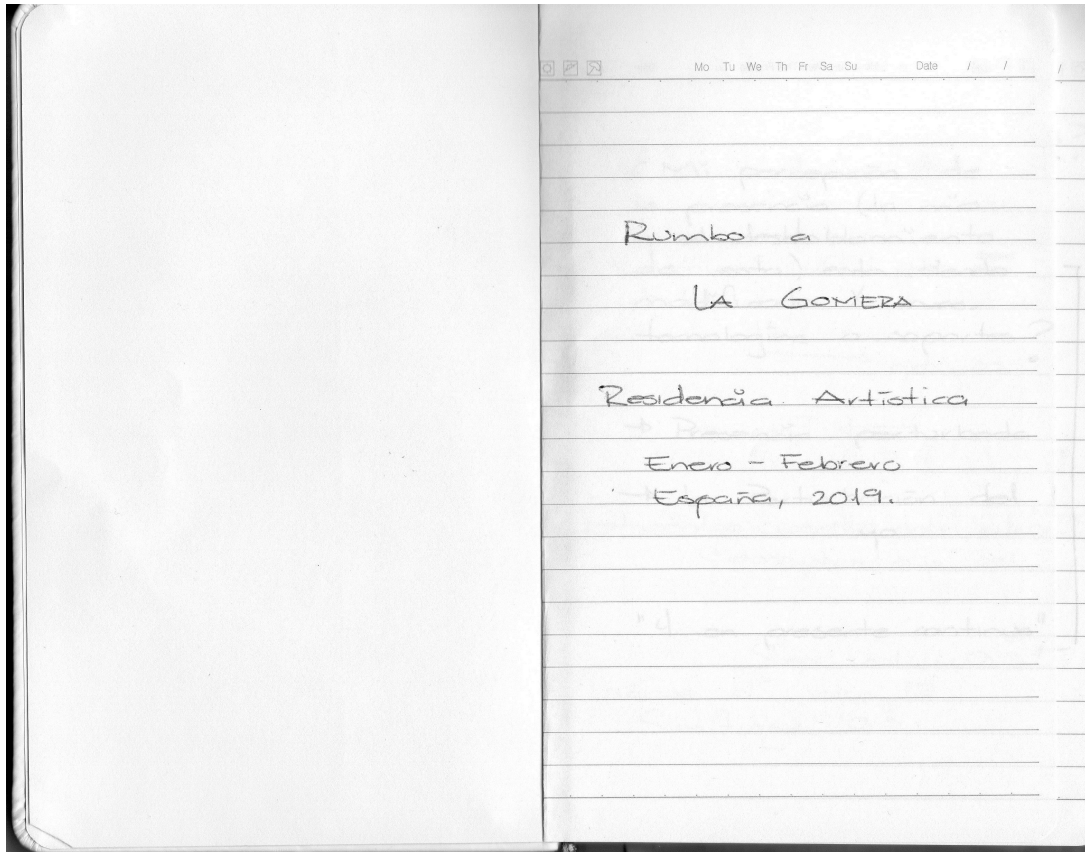 Mo Tu We Th Fr Sa Su Date / /
Rumbo a
LA GOMERA
Residencia Artística
Enero - Febrero
España, 2019.